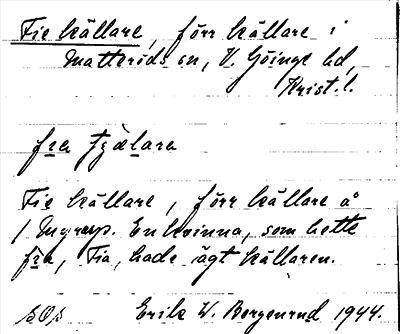 Fie källare, förr källare i
Matteröds sn, V. Göinge hd,
Krist. l.
fra
Fie källare, förr källare å
En kvinna, som hette
Fia, hade ägt källaren.
Erik W. Borgenrud 1944.